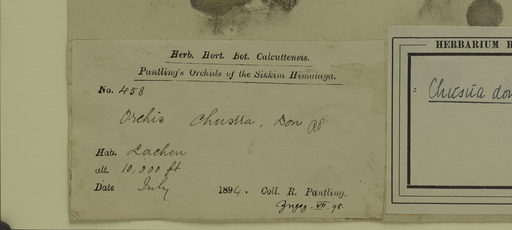 Herb. Hort. Bot. Calcuttensis.
Pantling's Orchids of the Sikkim Himalaya.
No. 458
Orchis Chusua, Don
Hab. Lachen
alt. 10,000 ft
Date July 1894. Coll. R. Pantling.
VII. 98.
HERBARIUM R
Chusua don